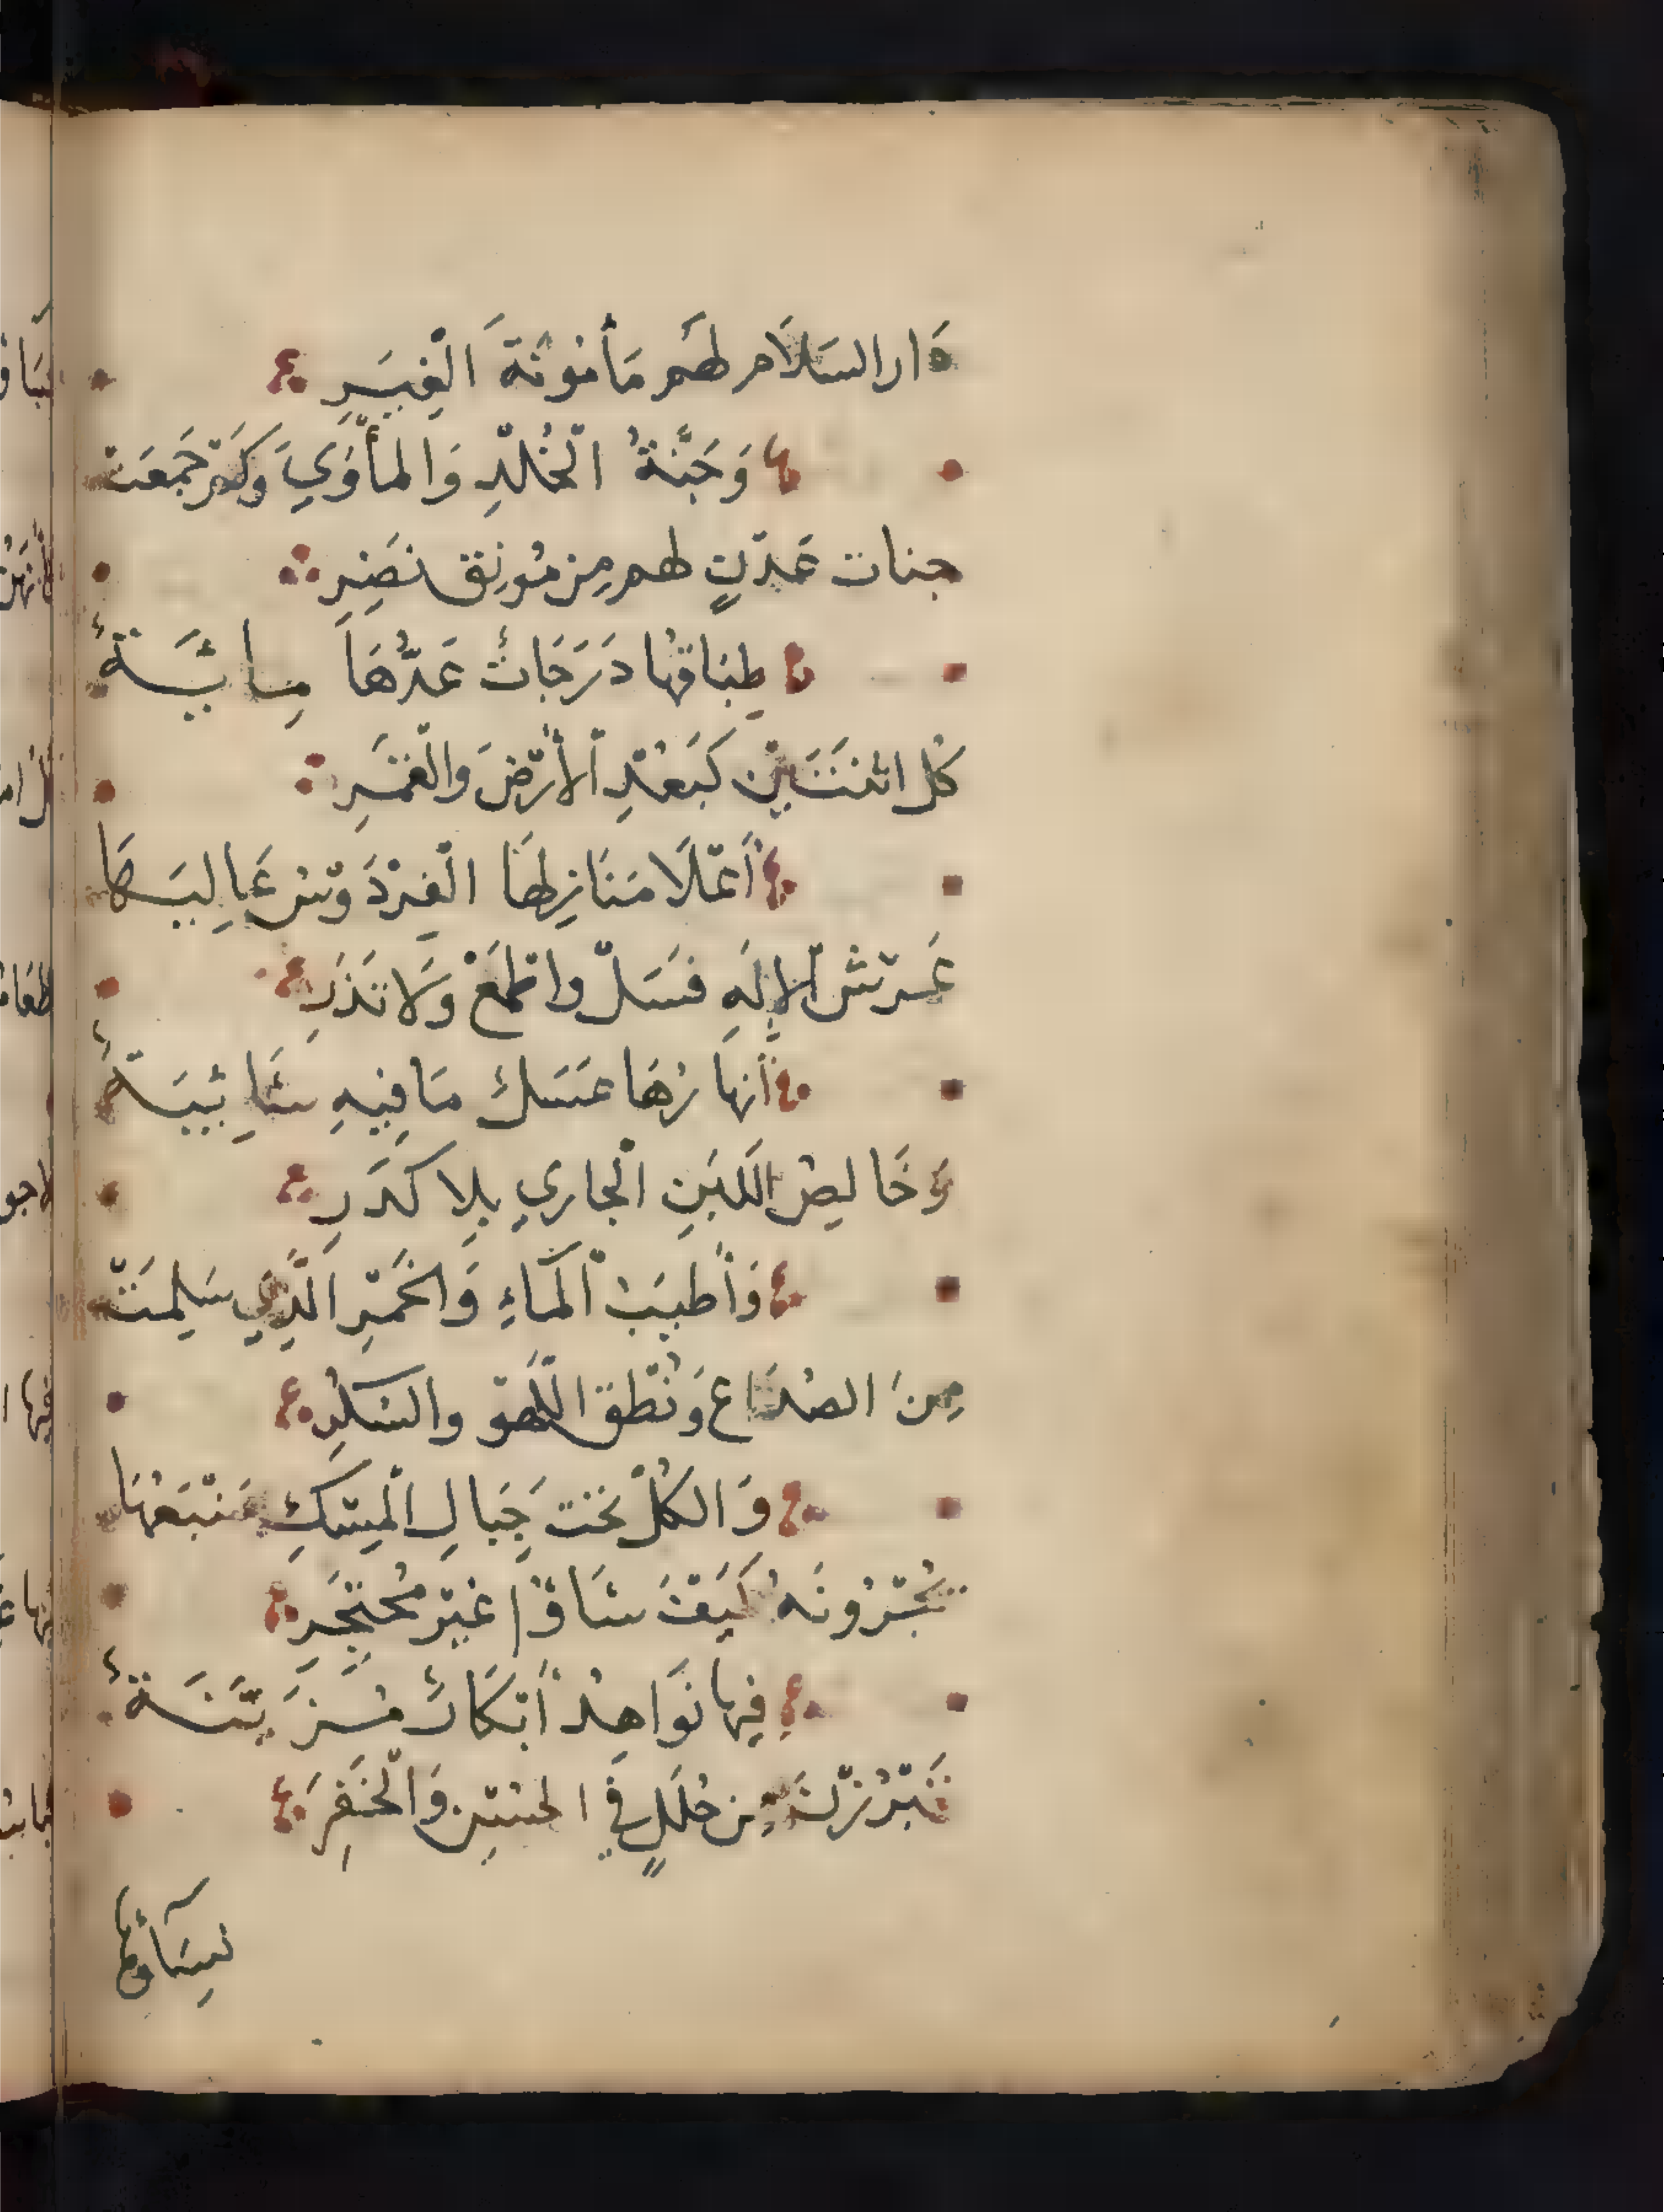 دَار السَلاَم لهَم مَأمُونَةَ الْغِيَرِ
وَجَنَّةُ الْخُلْدِ وَالمأْوَي وَكَمْ جَمَعَتْ
جنات عَدْنٍ لهم مِن مُونِق نَضِرِ
طِبَاقُها دَرَجَاتٌ عَدُّهَا مِايَةٌ
كُل اثنَتَيْن كَبَعْدِ الْأَرْضَ والْقَمَرِ
أَعْلَا مَنَازِلهَا الْفِرْدَوْسُ عَالِيَهَا
عَرْشُ الْإِلَهِ فَسَلْ واطْمَعْ وَلَا تَذَرِ
أَنهارُهَا عَسَلٌ مَا فِيهِ شَايِبَةٌ
وَخَالِصُ اللَبَنِ الْجارِي بِلا كَدَرِ
وَأَطيَبُ الْمَاءِ وَالخَمْرِ الَّذِي سَلِمَتْ
مِنَ الصُدَاع وَنُطْقِ اللَّهْو والسَكَرِ
وَالكُلُّ تحْت جِبَالِ الْمِسْكِ مَنْبَعُهَا
يُجْرُونَهُ كَيْفَ شَاؤُا غَيْر مُحْتَجَرِ
فِيها نَوَاهِدُ أَبْكَارٌ مُزَيَّنَةٌ
يَبْرُزْنَ مِن حُلَلٍ فِي الحُسْنِ وَالْخَفَرِ
نِسَاؤُها